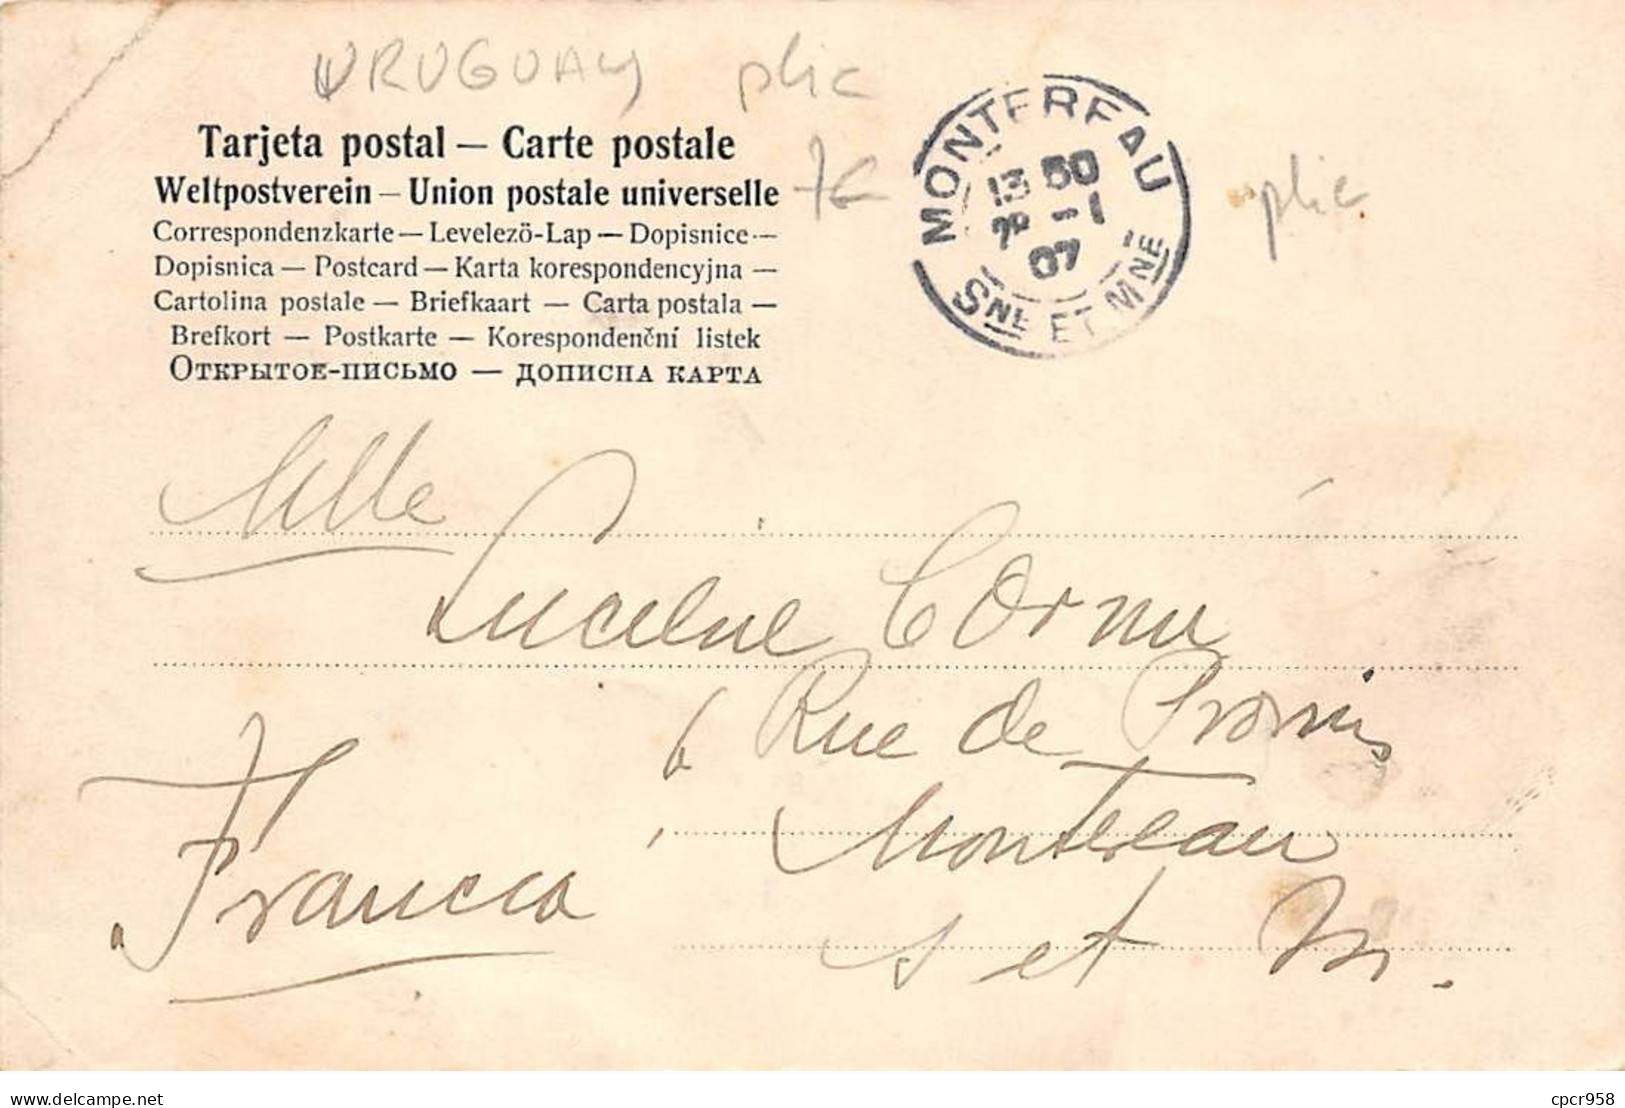 URUGUAY plic
Tarjeta postal — Carte postale
Weltpostverein — Union postale universelle
Correspondenzkarte — Levelezö-Lap — Dopisnice —
Dopisnica — Postcard — Karta korespondencyjna —
Cartolina postale — Briefkaart — Carta postala —
Brefkort — Postkarte — Korespondenční listek
Открытое-письмо — дописна карта
7€
MONTEREAU
13 50
-1
07
SNE ET MNE
plic
Mlle
Lucienne Cornu
6 Rue de Provins
Montereau
S et M.
Francia
www.delcampe.net
cpcr958